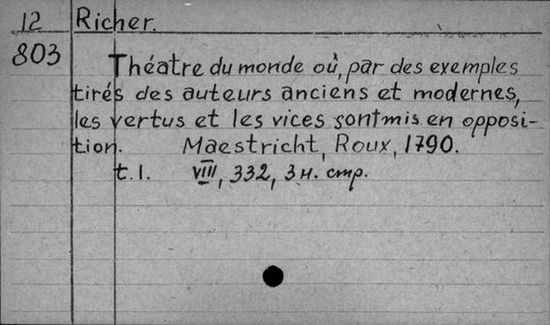 12 Richer.
803
Théatre du monde où, par des exemples
tirés des auteurs anciens et modernes,
les vertus et les vices sont mis en opposi-
tion. Maestricht, Roux, 1790.
t.1. VIII, 332, 3 н. стр.